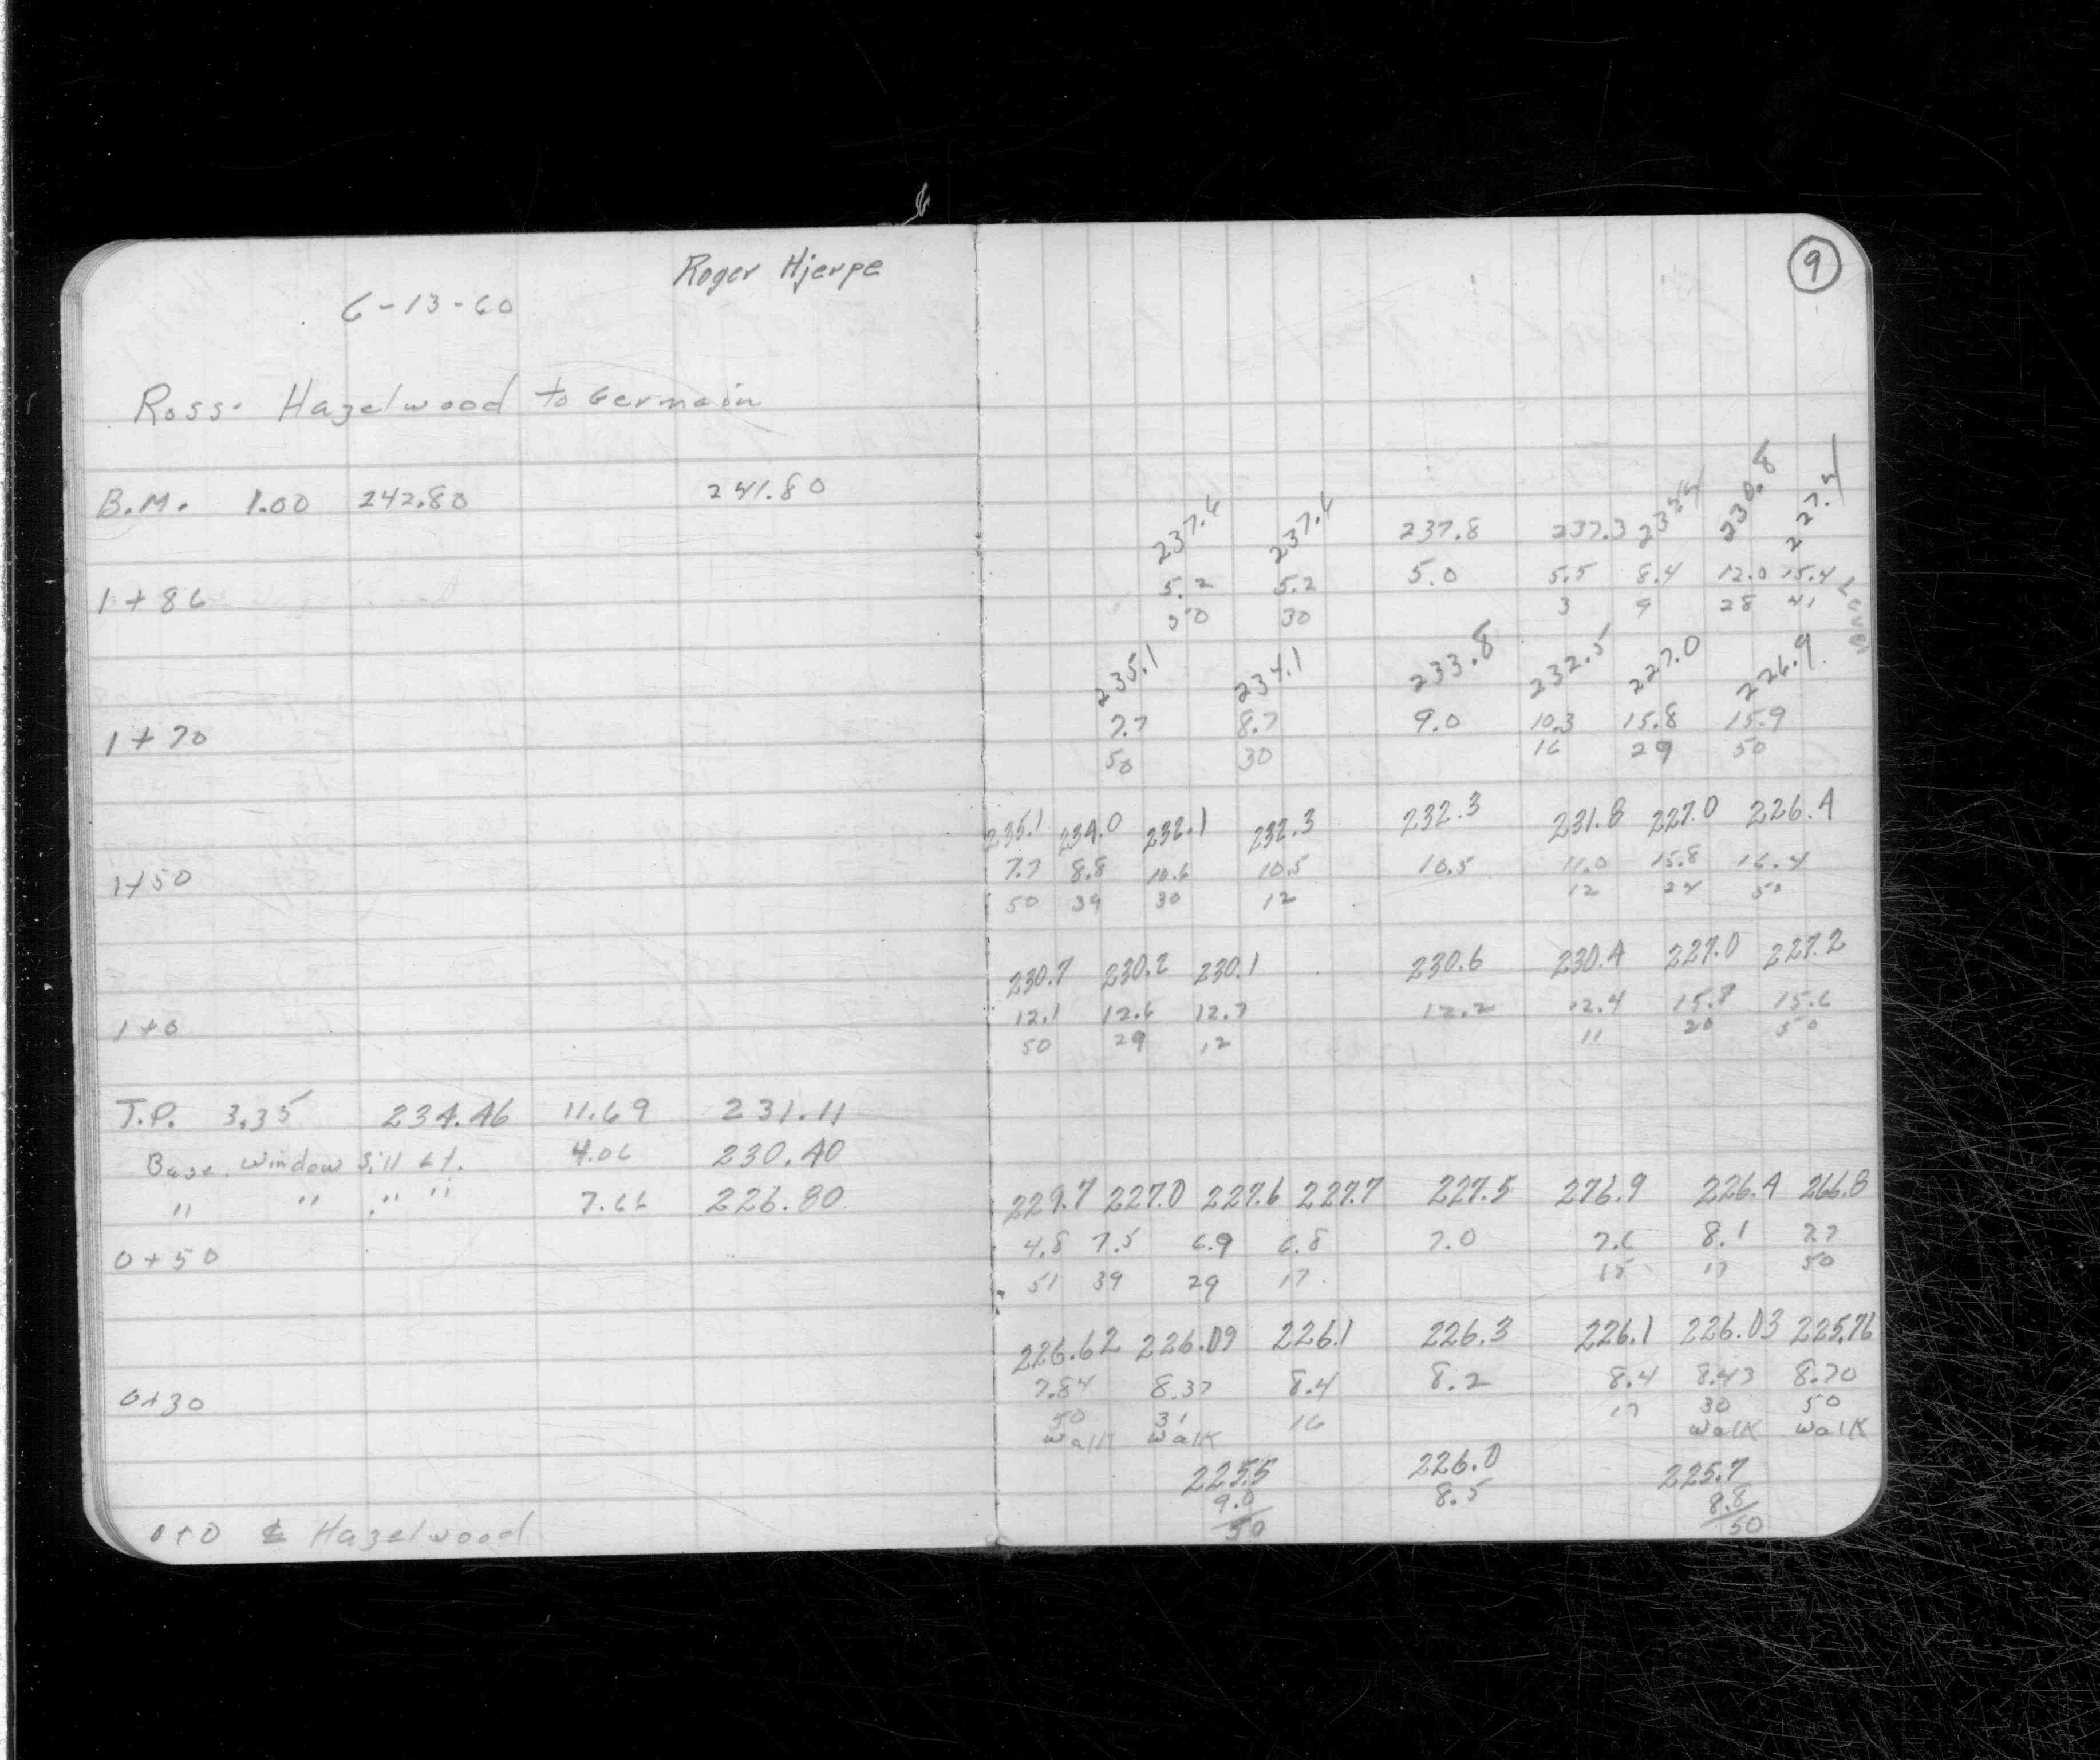 Roger Hjerpe
6-13-60
Ross. Hazelwood to Germain
B.M. 1.00 242.80 241.80
1+86
1+70
1+50
1+0
T.P. 3.35 234.46 11.69 231.11
Base. window sill 61. 4.06 230.40
" " " " 7.66 226.80
0+50
0+30
0+0 ℄ Hazelwood
9
237.6 237.6 237.8 237.3 234.4 230.8 227.4
5.2 5.2 5.0 5.5 8.4 12.0 15.4
50 30 3 9 28 41
235.1 234.1 233.8 232.5 227.0 226.9
7.7 8.7 9.0 10.3 15.8 15.9
50 30 16 29 50
235.1 234.0 232.1 232.3 232.3 231.8 227.0 226.4
7.7 8.8 10.6 10.5 10.5 11.0 15.8 16.4
50 39 30 12 12 24 50
230.7 230.2 230.1 230.6 230.4 227.0 227.2
12.1 12.6 12.7 12.2 12.4 15.8 15.6
50 29 12 11 20 50
229.7 227.0 227.6 227.7 227.5 276.9 226.4 266.8
4.8 7.5 6.9 6.8 7.0 7.6 8.1 7.7
51 39 29 17 15 17 50
226.62 226.09 226.1 226.3 226.1 226.03 225.76
7.84 8.37 8.4 8.2 8.4 8.43 8.70
50 31 16 17 30 50
walk walk walk walk
225.5 226.0 225.7
9.0 8.5 8.8
50 50